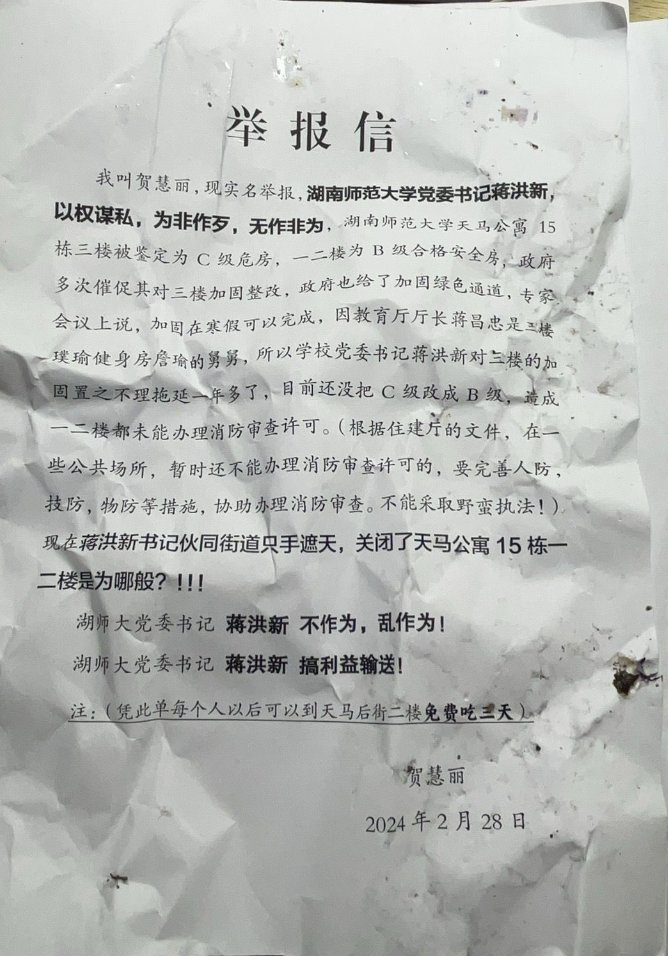 举报信
我叫贺慧丽，现实名举报，湖南师范大学党委书记蒋洪新，
以权谋私，为非作歹，无作非为，湖南师范大学天马公寓 15
栋三楼被鉴定为 C 级危房，一二楼为 B 级合格安全房，政府
多次催促其对三楼加固整改，政府也给了加固绿色通道，专家
会议上说，加固在寒假可以完成，因教育厅厅长蒋昌忠是三楼
璞瑜健身房詹瑜的舅舅，所以学校党委书记蒋洪新对三楼的加
固置之不理拖延一年多了，目前还没把 C 级改成 B 级，造成
一二楼都未能办理消防审查许可。（根据住建厅的文件，在一
些公共场所，暂时还不能办理消防审查许可的，要完善人防，
技防，物防等措施，协助办理消防审查。不能采取野蛮执法！）
现在蒋洪新书记伙同街道只手遮天，关闭了天马公寓 15 栋一
二楼是为哪般？！！！
湖师大党委书记 蒋洪新 不作为，乱作为！
湖师大党委书记 蒋洪新 搞利益输送！
注：（凭此单每个人以后可以到天马后街二楼免费吃三天）
贺慧丽
2024 年 2 月 28 日